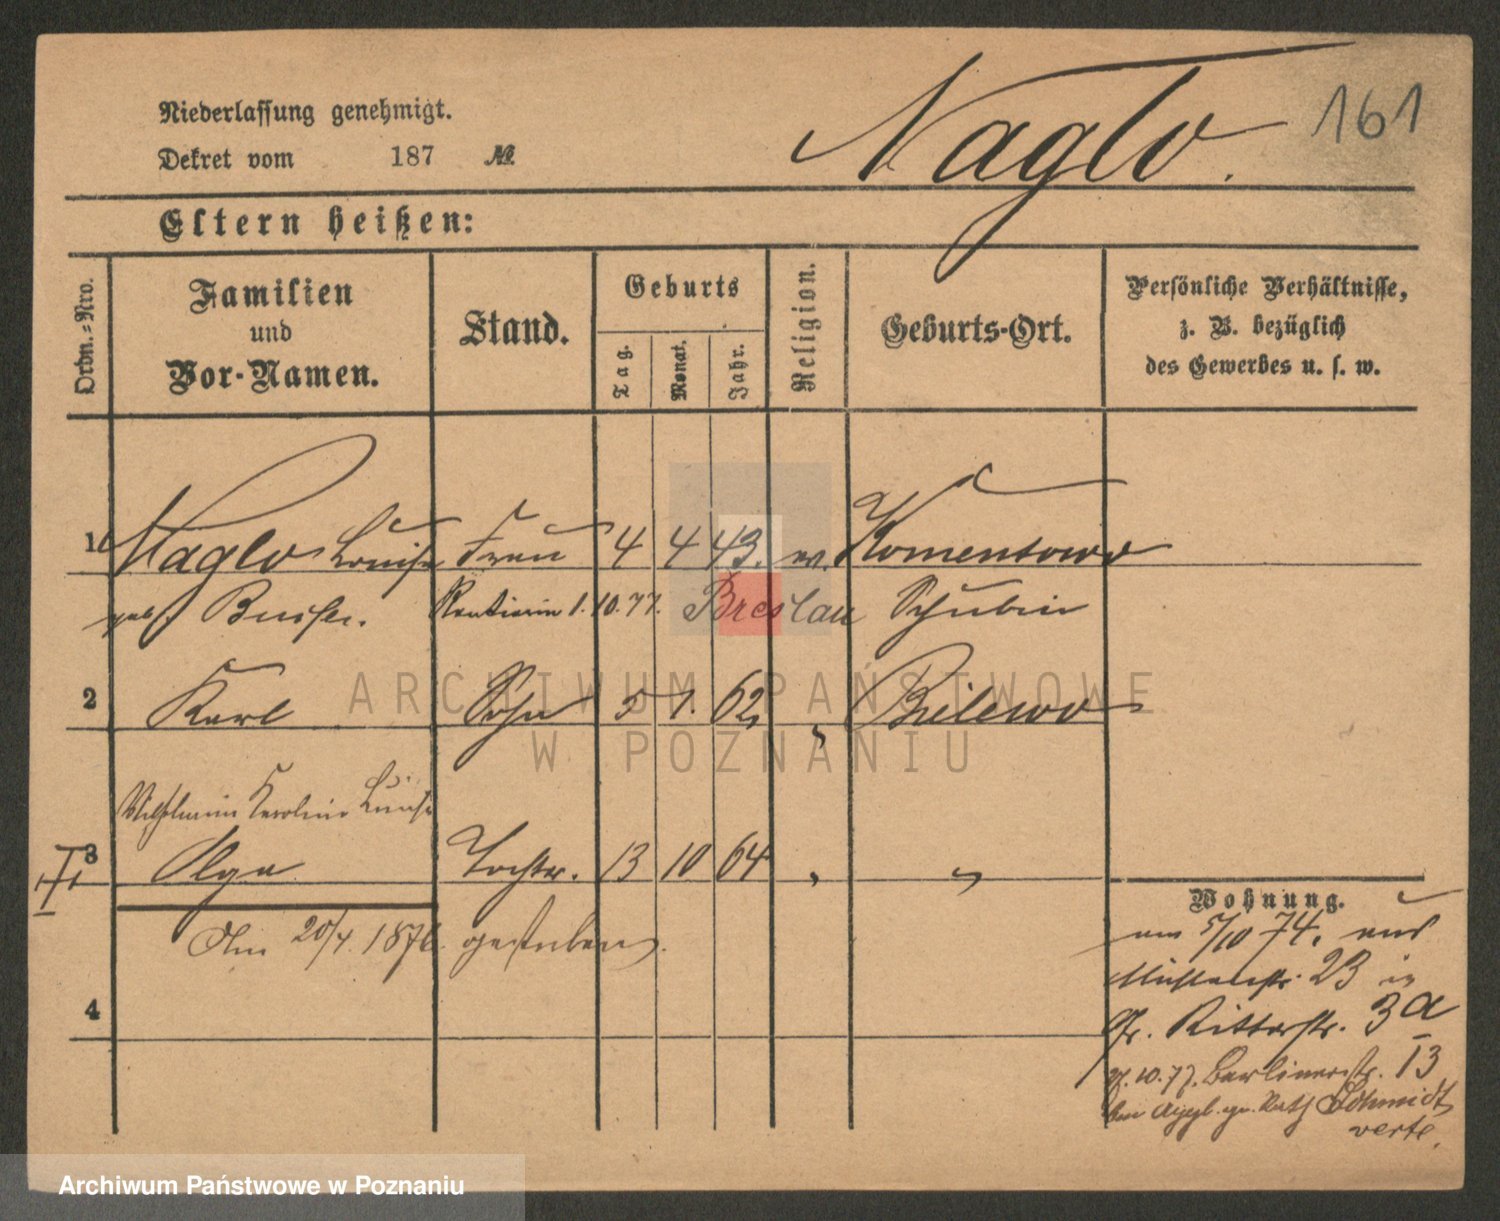 Niederlassung genehmigt.
Dekret vom 187 №
Naglo.
161
Eltern heißen:
Ordn.-Nro.
Familien
und
Vor-Namen.
Stand.
Geburts
Tag.
Monat.
Jahr.
Religion.
Geburts-Ort.
Persönliche Verhältnisse,
z. B. bezüglich
des Gewerbes u. s. w.
1 Naglo Louise Frau 4 4 43. ev. Komentowo
geb. Rentierin 1.10.77. Breslau Schubin
2 Karl Sohn 5 1. 62 " Bielewo
ARCHIWUM PAŃSTWOWE
W POZNANIU
Wilhelmine Karoline Luise
3 Olga Tochtr. 13 10 64 " "
Am 20/4. 1876. gestorben.
4
Wohnung.
am 5/10 74. aus
Mühlenstr. 23 in
Gr. Ritterstr. 3a
10.77. Berlinerstr. 13
bei Appel. Schmidt
verte.
Archiwum Państwowe w Poznaniu